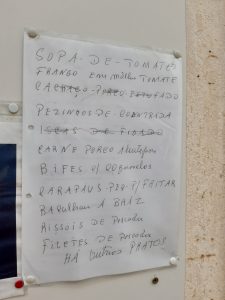 SOPA DE TOMATE
FRANGO Em molho TOMATE
CACHAÇO PORCO FADO
PEZINHOS DE COENTRADA
ISCAS DE FIGADO
CARNE PORCO Alentejana
BIFES c/ Cogumelos
CARAPAUS PEQ. P/ FRITAR
Bacalhau A BRÁZ
RISSOIS DE Pescada
FILETES DE Pescada
HÁ Outros PRATOS